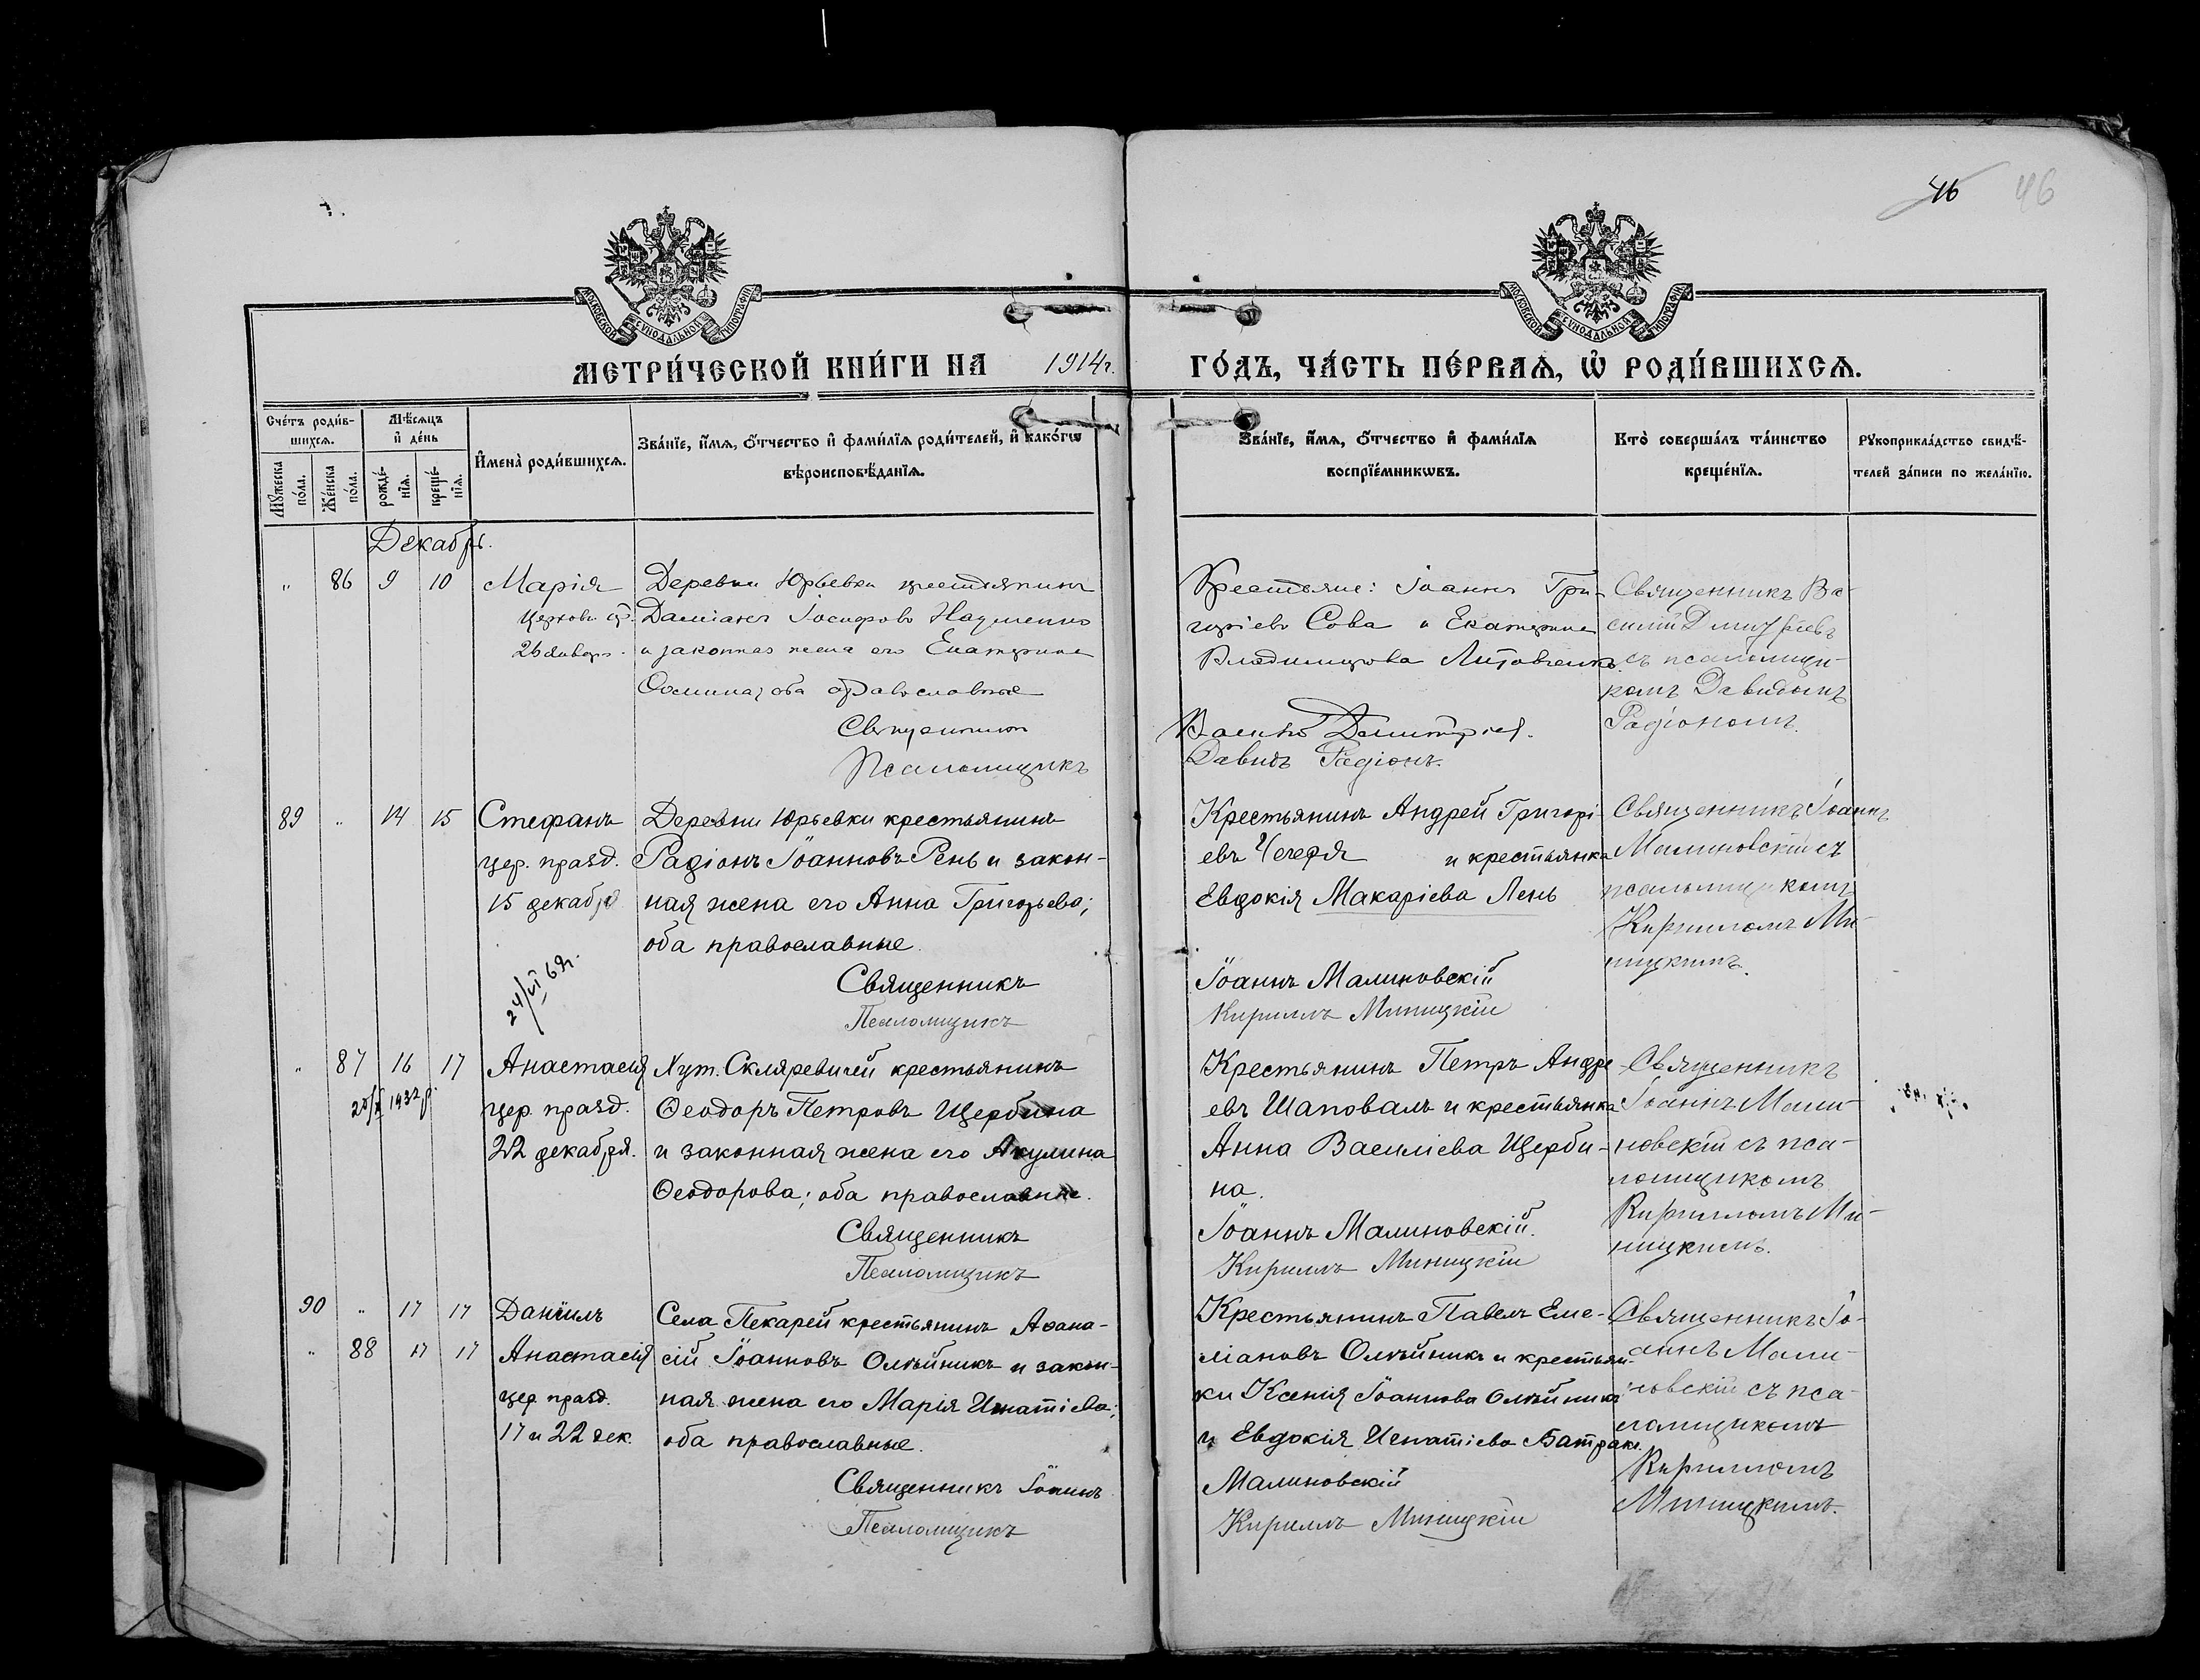 46 46
МОСКОВСКОЙ СУНОДАЛЬНОЙ ТИПОГРАФІИ
МОСКОВСКОЙ СУНОДАЛЬНОЙ ТИПОГРАФІИ
МЕТРИ́ЧЕСКОЙ КНИ́ГИ НА 1914г. ГО́ДЪ, ЧА́СТЬ ПЕ́РВАѦ, Ѡ҆ РОДИ́ВШИХСѦ.
Сче́тъ роди́в-
шихсѧ.
Мꙋ́жеска по́ла.
Же́нска по́ла.
Мѣ́сѧцъ
и҆ де́нь
рожде́-
нїѧ.
креще́-
нїѧ.
И҆мена̀ роди́вшихсѧ.
Зва́нїе, и҆́мѧ, ѻ҆́тчество и҆ фами́лїѧ роди́телей, и҆ како́гѡ
вѣроисповѣ́данїѧ.
Зва́нїе, и҆́мѧ, ѻ҆́тчество и҆ фами́лїѧ
воспрїе́мникѡвъ.
Кто̀ соверша́лъ та́инство
креще́нїѧ.
Рꙋкоприкла́дство свидѣ́-
телей за́писи по жела́нїю.
Декабрь.
" 86 9 10
Марія
26 января.
Деревни Юрьевки крестьянинъ
Даміанъ Іосифовъ Науменко
и законная жена его Екатерина
оба православные
Священникъ
Псаломщикъ
Крестьяне: Іоаннъ Гри-
горіевъ Сова и Екатерина
Владимирова Литовченко.
Василій Димитріевъ.
Давидъ Радіонъ.
Священникъ Ва-
силій Димитріевъ
съ псаломщи-
комъ Давидомъ
Радіономъ.
89 " 14 15
Стефанъ
цер. празд.
15 декабря
24/VI 69г.
Деревни Юрьевки крестьянинъ
Радіонъ Іоанновъ Рень и закон-
ная жена его Анна Григорьева;
оба православные.
Священникъ
Псаломщикъ
Крестьянинъ Андрей Григорі-
евъ и крестьянка
Евдокія Макаріева Лень
Іоаннъ Малиновскій
Кириллъ Миницкій
Священникъ Іоаннъ
Малиновскій съ
псаломщикомъ
Кирилломъ Ми-
ницкимъ.
" 87 16 17
1932р.
Анастасія
цер. празд.
22 декабря.
Хут. Скляревичей крестьянинъ
Ѳеодоръ Петровъ Щербина
и законная жена его Акулина
Ѳеодорова; оба православные.
Священникъ
Псаломщикъ
Крестьянинъ Петръ Андре-
евъ Шаповалъ и крестьянка
Анна Василіева Щерби-
на.
Іоаннъ Малиновскій.
Кириллъ Миницкій
Священникъ
Іоаннъ Мали-
новскій съ пса-
ломщикомъ
Кирилломъ Ми-
ницкимъ.
90 " 17 17
" 88 17 17
Даніилъ
Анастасія
цер. празд.
17 и 22 дек.
Села Пекарей крестьянинъ Аѳана-
сій Іоанновъ Олѣйникъ и закон-
ная жена его Марія Игнатіева;
оба православные.
Священникъ Іоаннъ
Псаломщикъ
Крестьянинъ Павелъ Еме-
ліановъ Олѣйникъ и крестьян-
ки Ксенія Іоаннова Олѣйникъ
и Евдокія Игнатіева Батракъ.
Малиновскій
Кириллъ Миницкій
Священникъ Іо-
аннъ Мали-
новскій съ пса-
ломщикомъ
Кирилломъ
Миницкимъ.